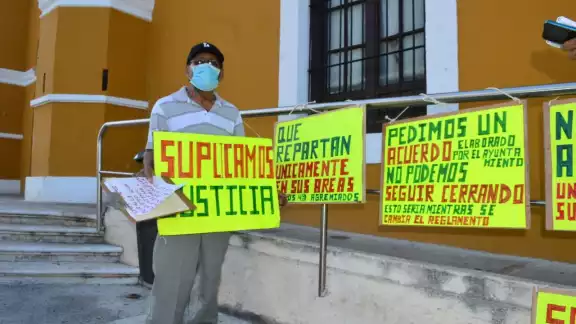 SUPLICAMOS
JUSTICIA
QUE
REPARTAN
UNICAMENTE
EN SUS AREAS
LOS 49 AGREMIADOS
PEDIMOS UN
ACUERDO ELABORADO
POR EL AYUNTA
MIENTO
NO PODEMOS
SEGUIR CERRANDO
ESTO SERIA MIENTRAS SE
CAMBIA EL REGLAMENTO